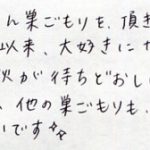 ん巣ごもりを、頂き
以来、大好きにな
秋が待ちどおし
、他の巣ごもりも、
いです